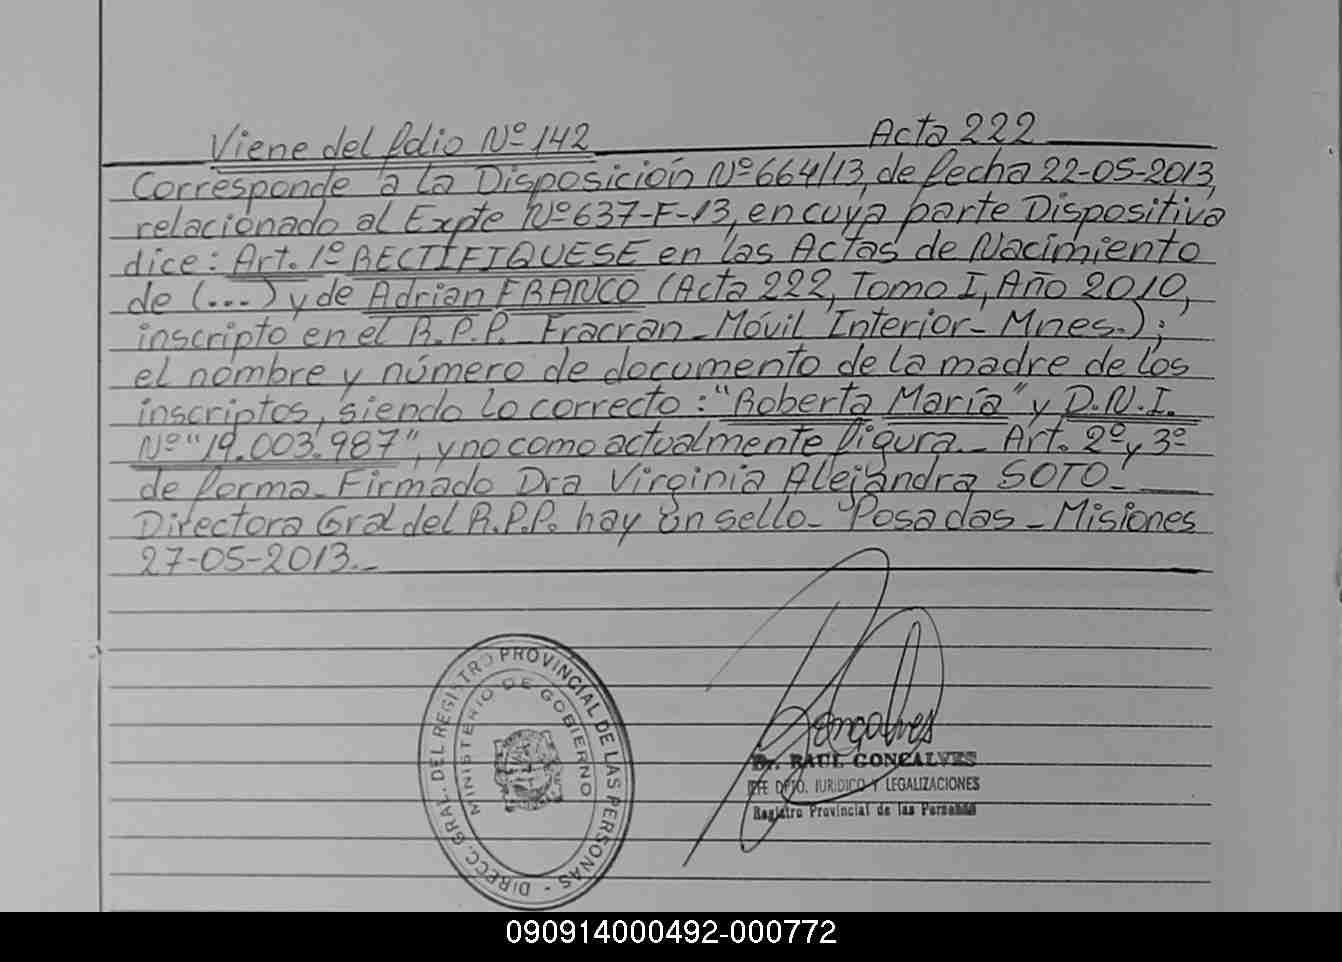 Viene del folio Nº 142 Acta 222
Corresponde a la Disposición Nº 664/13, de fecha 22-05-2013,
relacionado al Expte Nº 637-F-13, en cuya parte Dispositiva
dice: Art. 1º RECTIFIQUESE en las Actas de Nacimiento
de (...) y de Adrian FRANCO (Acta 222, Tomo I, Año 2010,
inscripto en el R.P.P. Fracran - Móvil Interior - Mnes.);
el nombre y número de documento de la madre de los
inscriptos, siendo lo correcto: "Roberta María" y D.N.I.
Nº "19.003.987", y no como actualmente figura.- Art. 2º y 3º
de forma - Firmado Dra Virginia Alejandra SOTO -
Directora Gral del R.P.P. hay un sello - Posadas - Misiones
27-05-2013.-
DIRECC. GRAL. DEL REGISTRO PROVINCIAL DE LAS PERSONAS -
MINISTERIO DE GOBIERNO
Gonçalves
Dr. RAUL GONCALVES
JEFE DPTO. JURIDICO Y LEGALIZACIONES
Registro Provincial de las Personas
090914000492-000772